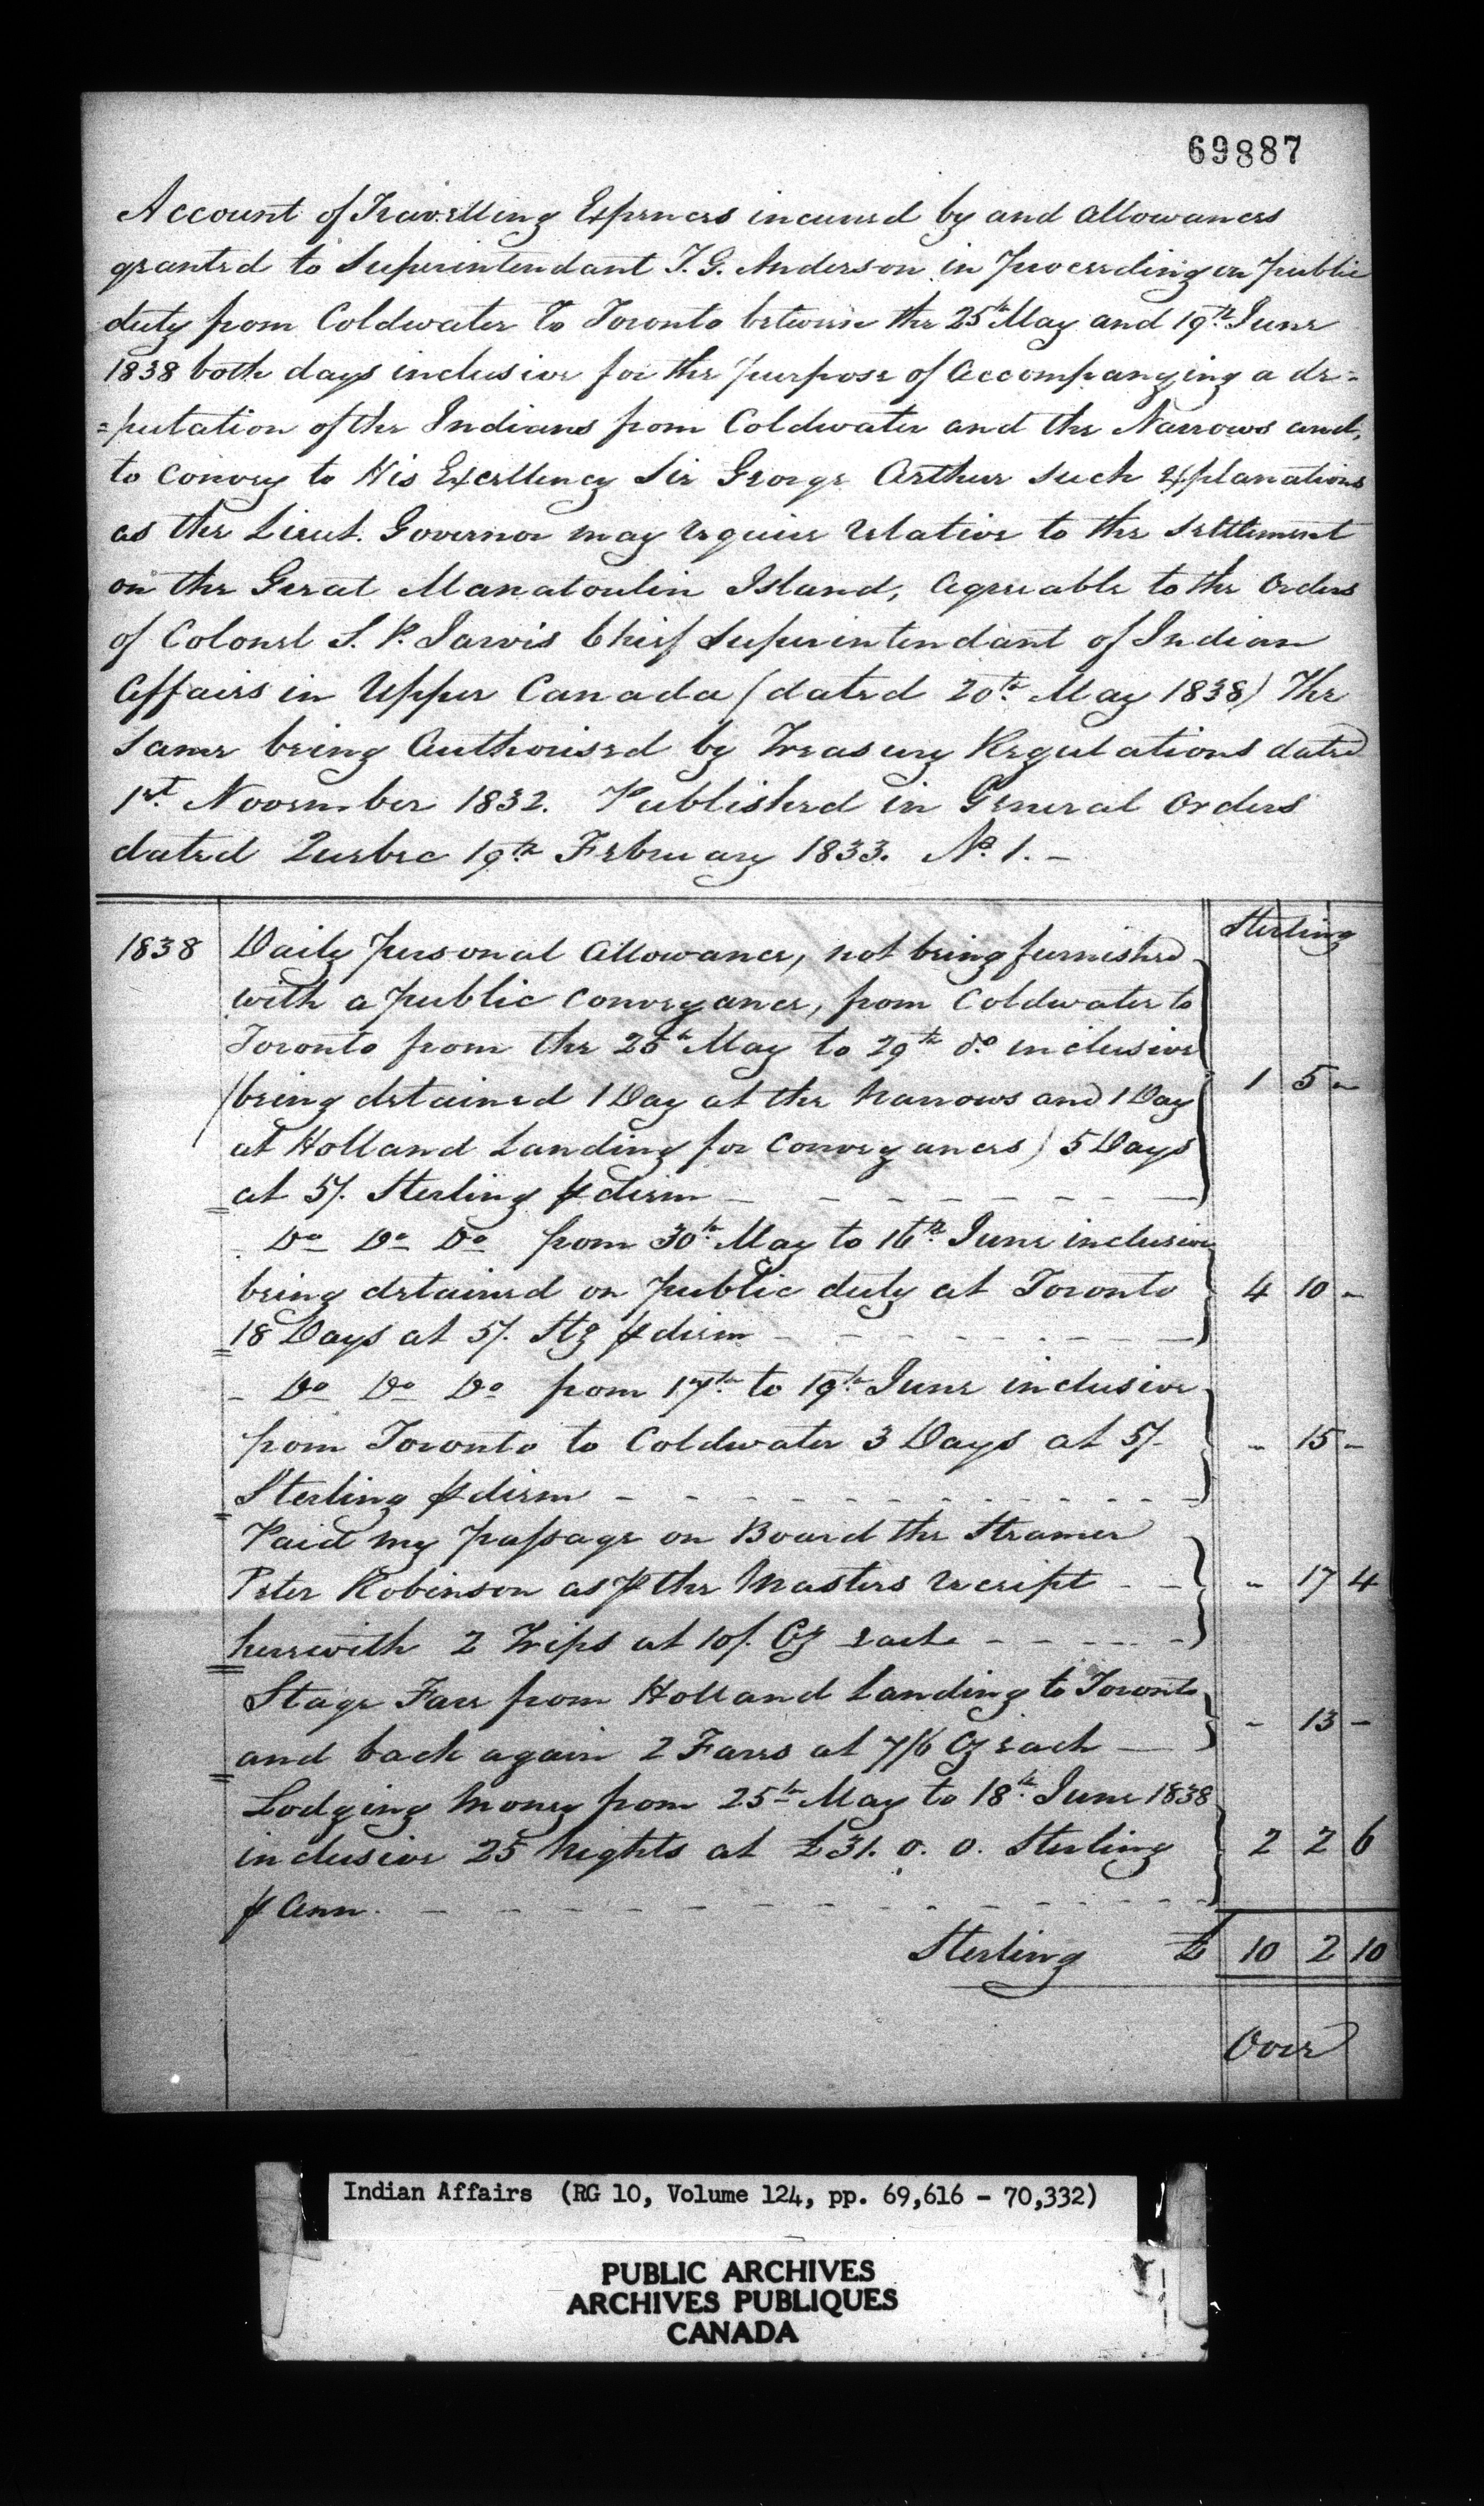 69887
Account of Travelling Expences incurred by and Allowances
granted to Superintendant T. G. Anderson in proceeding on public
duty from Coldwater to Toronto between the 25th May and 19th June
1838 both days inclusive for the purpose of Accompanying a de=
=putation of the Indians from Coldwater and the Narrows and,
to Convey to His Excellency Sir George Arthur such explanations
as the Lieut. Governor may require relative to the settlement
on the Great Manatoulin Island, Agreeable to the Orders
of Colonel S. P. Jarvis Chief Superintendant of Indian
Affairs in Upper Canada (dated 20th May 1838) The
same being Authorised by Treasury Regulations dated
1st November 1832. Published in General Orders
dated Quebec 19th February 1833. No. 1. –
Sterling
1838 Daily personal Allowance, not being furnished
with a public conveyance, from Coldwater to
Toronto from the 25th May to 29th do inclusive
(being detained 1 Day at the Narrows and 1 Day 1 5 –
at Holland Landing for Conveyances) 5 Days
at 5/. Sterling ⅌ diem – – – – – – – –
Do Do Do from 30th May to 16th June inclusive
being detained on public duty at Toronto 4 10 –
18 Days at 5/. Stg ⅌ diem – – – – – – –
– Do Do Do from 17th to 19th June inclusive
from Toronto to Coldwater 3 Days at 5/- – 15 –
Sterling ⅌ diem – – – – – – – – – –
Paid my passage on Board the Steamer
Peter Robinson as ⅌ the Masters receipt – – – 17 4
herewith 2 Trips at 10/. Cy each – – – – –
Stage Fare from Holland Landing to Toronto – 13 –
and back again 2 Fares at 7/6 Cy each —
Lodging Money from 25th May to 18th June 1838
inclusive 25 Nights at £31. 0. 0. Sterling 2 2 6
⅌ Ann. – – – – – – – – – – –
Sterling £ 10 2 10
Over
Indian Affairs (RG 10, Volume 124, pp. 69,616 - 70,332)
PUBLIC ARCHIVES
ARCHIVES PUBLIQUES
CANADA